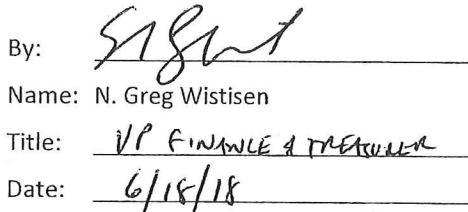 By:
Name: N. Greg Wistisen
Title: VP FINANCE & TREASURER
Date: 6/18/18